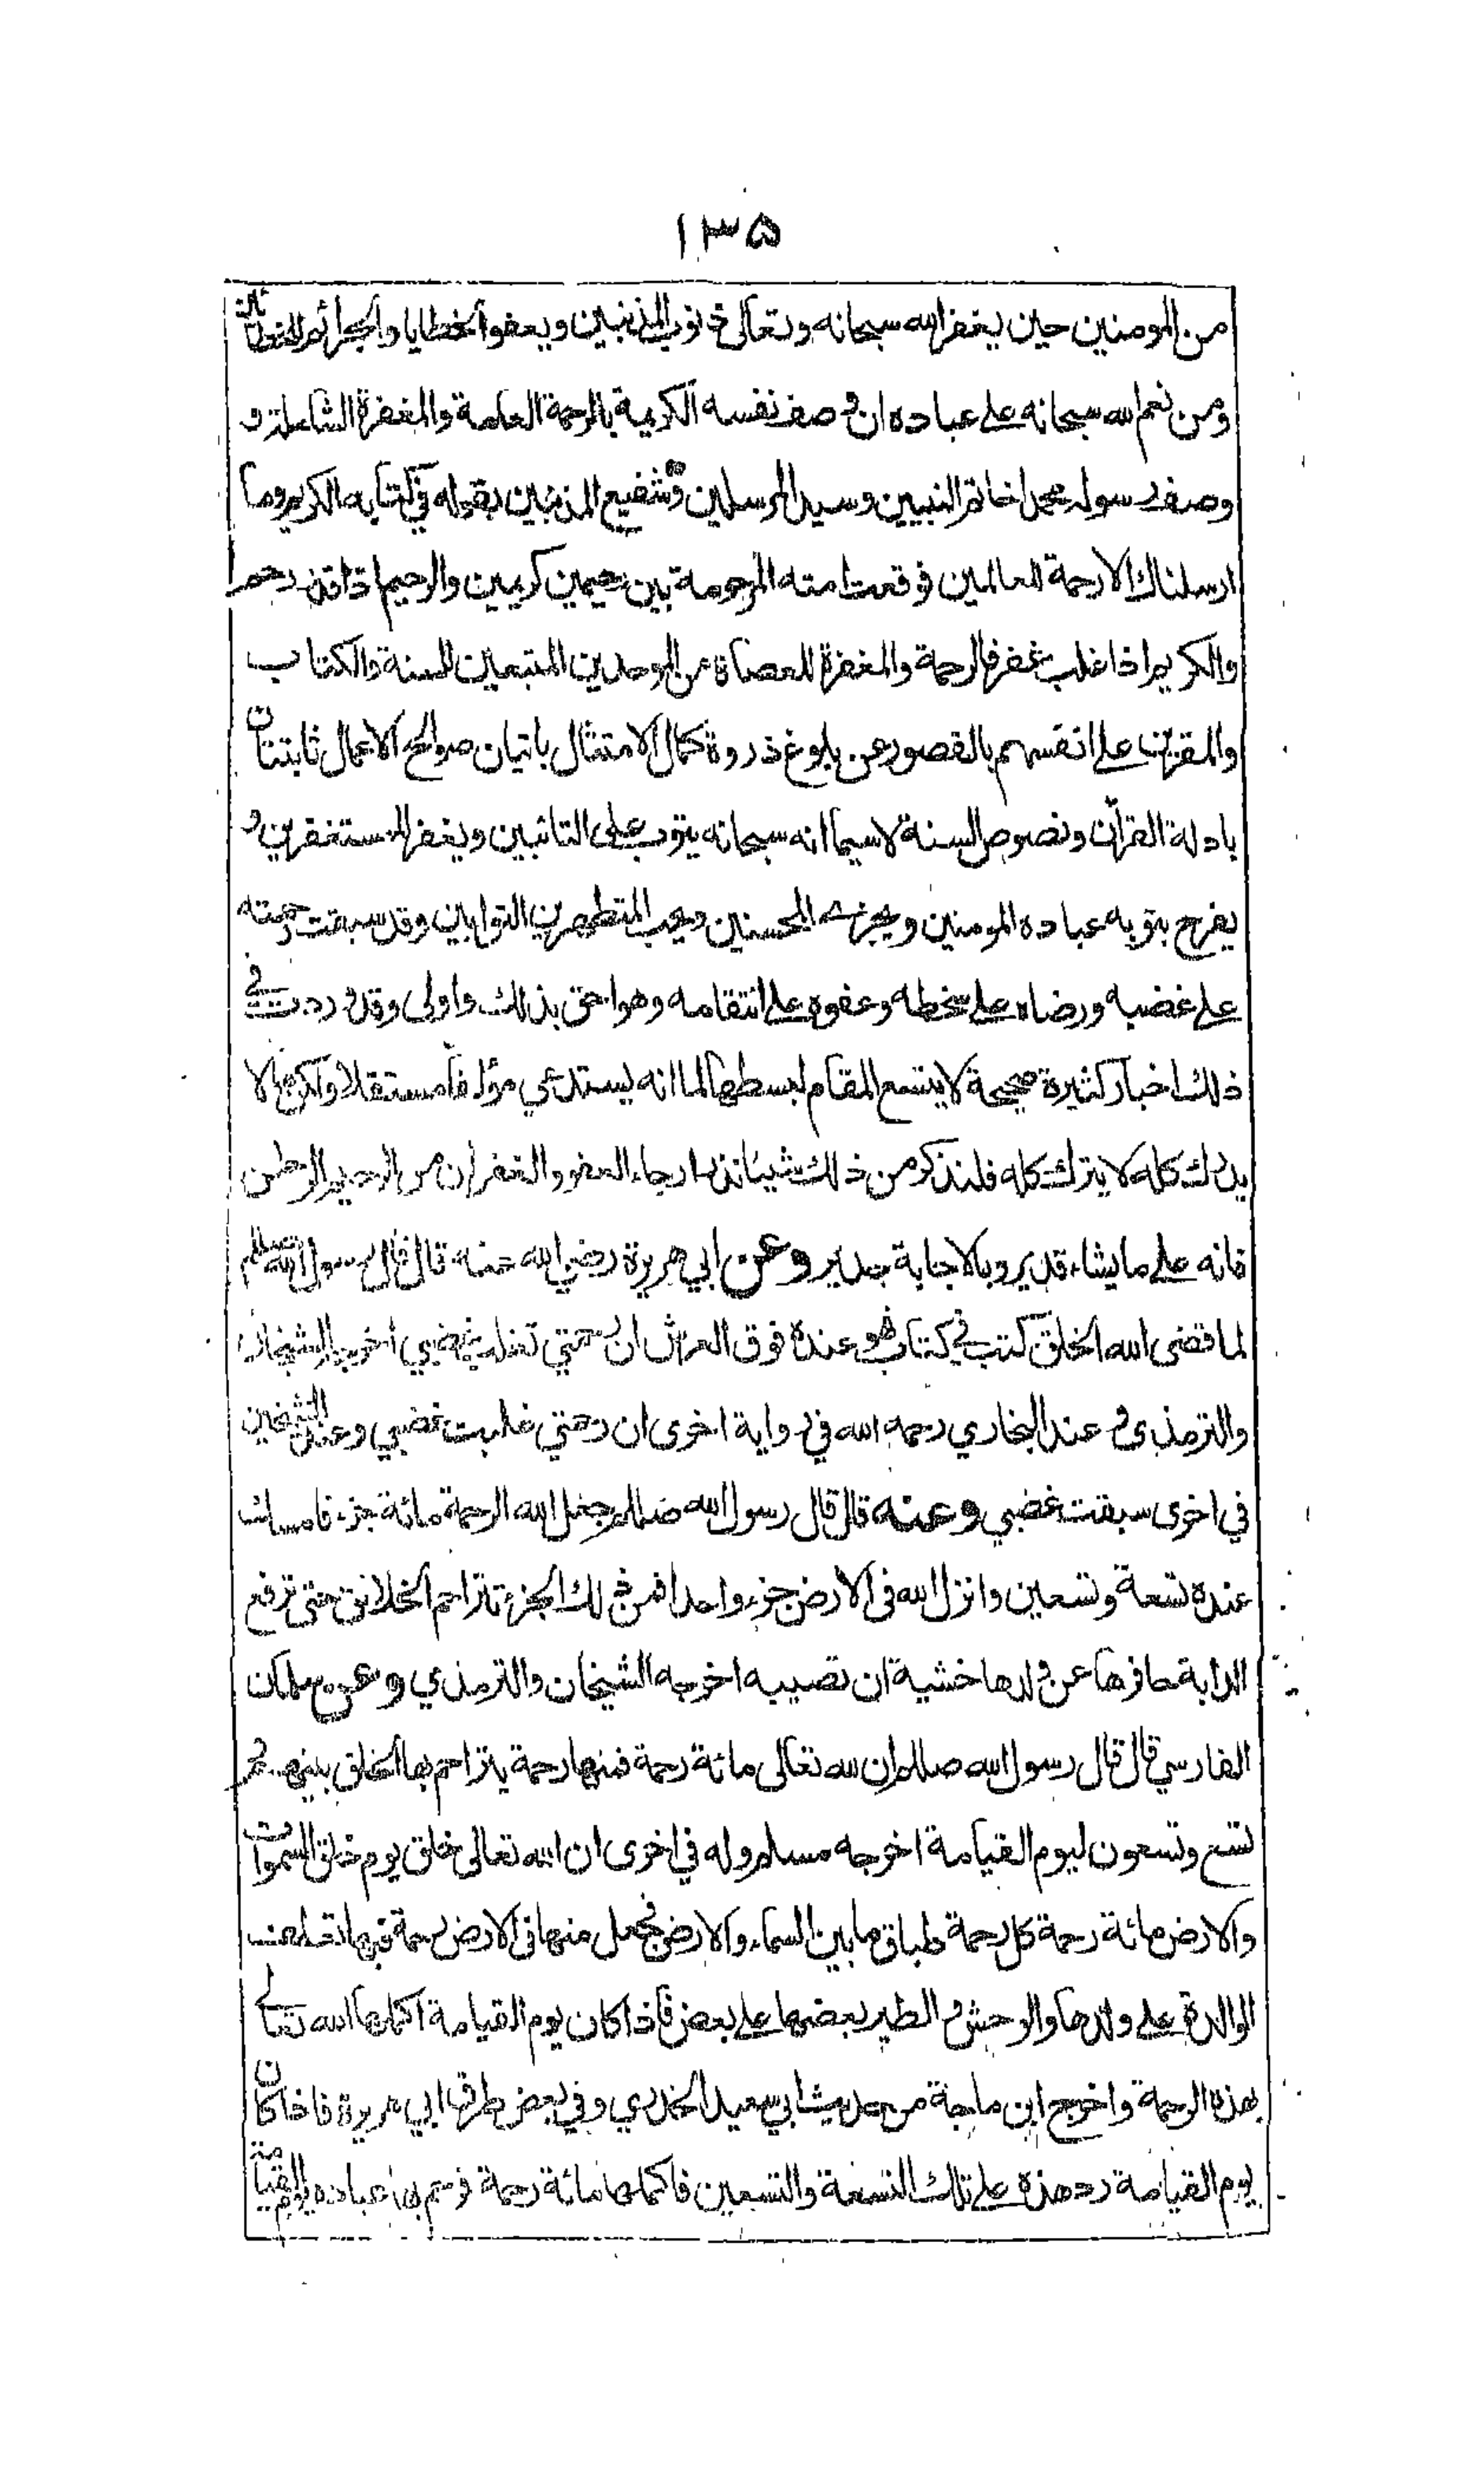 ١٣٥
من المومنين حين يغفر الله سبحانه وتعالى ذنوب المذنبين ويعفو الخطايا والجرائم للخطائين
ومن نعم الله سبحانه على عباده ان وصف نفسه الكريمة بالرحمة العامة والمغفرة الشاملة و
وصف رسوله محمدا خاتم النبيين وسيد المرسلين وشفيع المذنبين بقوله في كتابه الكريم وما
ارسلناك الا رحمة للعالمين فوقعت امته المرحومة بين رحيمين كريمين والرحيم اذا قدر رحم
والكريم اذا غلب غفر فالرحمة والمغفرة للعصاة من الموحدين المتبعين للسنة والكتاب
والمقرين على انفسهم بالقصور عن بلوغ ذروة كمال الامتثال باتيان صوالح الاعمال ثابتتان
بادلة القرآن ونصوص السنة لاسيما انه سبحانه يتوب على التائبين ويغفر للمستغفرين و
يفرح بتوبه عباده المومنين ويجزي المحسنين ويحب المتطهرين التوابين وقد سبقت رحمته
على غضبه ورضاه على سخطه وعفوه على انتقامه وهو احق بذلك واولى وقد وردت في
ذلك اخبار كثيرة صحيحة لا يتسع المقام لبسطها لما انه يستدعي مؤلفا مستقلا ولكن ما لا
يدرك كله لا يترك كله فلنذكر من ذلك شيئا نذرا رجاء العفو والغفران من الرحيم الرحمن
فانه على ما يشاء قدير وبالاجابة جدير وعن ابي هريرة رضي الله عنه قال قال رسول الله صللم
لما قضى الله الخلق كتب في كتاب فهو عنده فوق العرش ان رحمتي تغلب غضبي اخرجه الشيخان
والترمذي وعند البخاري رحمه الله في رواية اخرى ان رحمتي غلبت غضبي وعند الشيخين
في اخرى سبقت غضبي وعنه قال قال رسول الله صللم جعل الله الرحمة مائة جزء فامسك
عنده تسعة وتسعين وانزل الله في الارض جزء واحدا فمن ذلك الجزء تتراحم الخلائق حتى ترفع
الدابة حافرها عن ولدها خشية ان تصيبه اخرجه الشيخان والترمذي وعن سلمان
الفارسي قال قال رسول الله صللم ان لله تعالى مائة رحمة فمنها رحمة يتراحم بها الخلق بينهم و
تسع وتسعون ليوم القيامة اخرجه مسلم وله في اخرى ان الله تعالى خلق يوم خلق السموات
والارض مائة رحمة كل رحمة طباق ما بين السماء والارض فجعل منها في الارض رحمة فبها تعطف
الوالدة على ولدها والوحش والطير بعضها على بعض فاذا كان يوم القيامة اكملها الله تعالى
بهذه الرحمة واخرج ابن ماجة من حديث ابي سعيد الخدري وفي بعض طرقه ابي هريرة فاذا كان
يوم القيامة رد هذه على تلك التسعة والتسعين فاكملها مائة رحمة فرحم بها عباده يوم القيامة